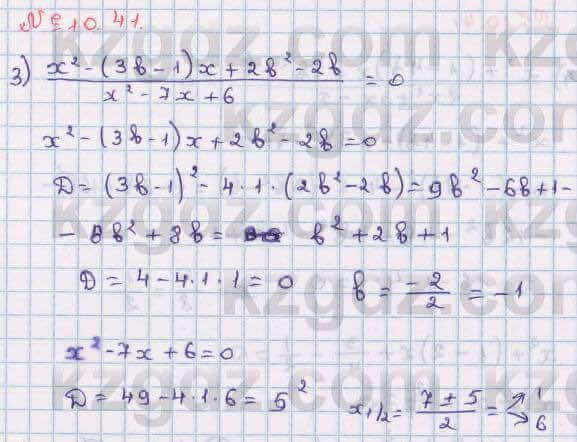 № 10.41.
3) (x² - (3b - 1)x + 2b² - 2b) / (x² - 7x + 6) = 0
x² - (3b - 1)x + 2b² - 2b = 0
D = (3b - 1)² - 4 · 1 · (2b² - 2b) = 9b² - 6b + 1 -
- 8b² + 8b = b² + 2b + 1
D = 4 - 4 · 1 · 1 = 0 b = -2/2 = -1
x² - 7x + 6 = 0
D = 49 - 4 · 1 · 6 = 5² x₁/₂ = (7 ± 5)/2 = 1
6
kzgdz.com